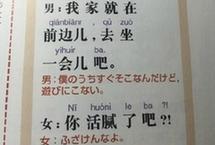 男：我家就在
qiánbiānr, qù zuò
前边儿，去坐
yíhuìr ba.
一会儿吧。
男：僕のうちすぐそこなんだけど，
遊びにこない。
Nǐ huónì le ba ?!
女：你活腻了吧?!
女：ふざけんなよ。